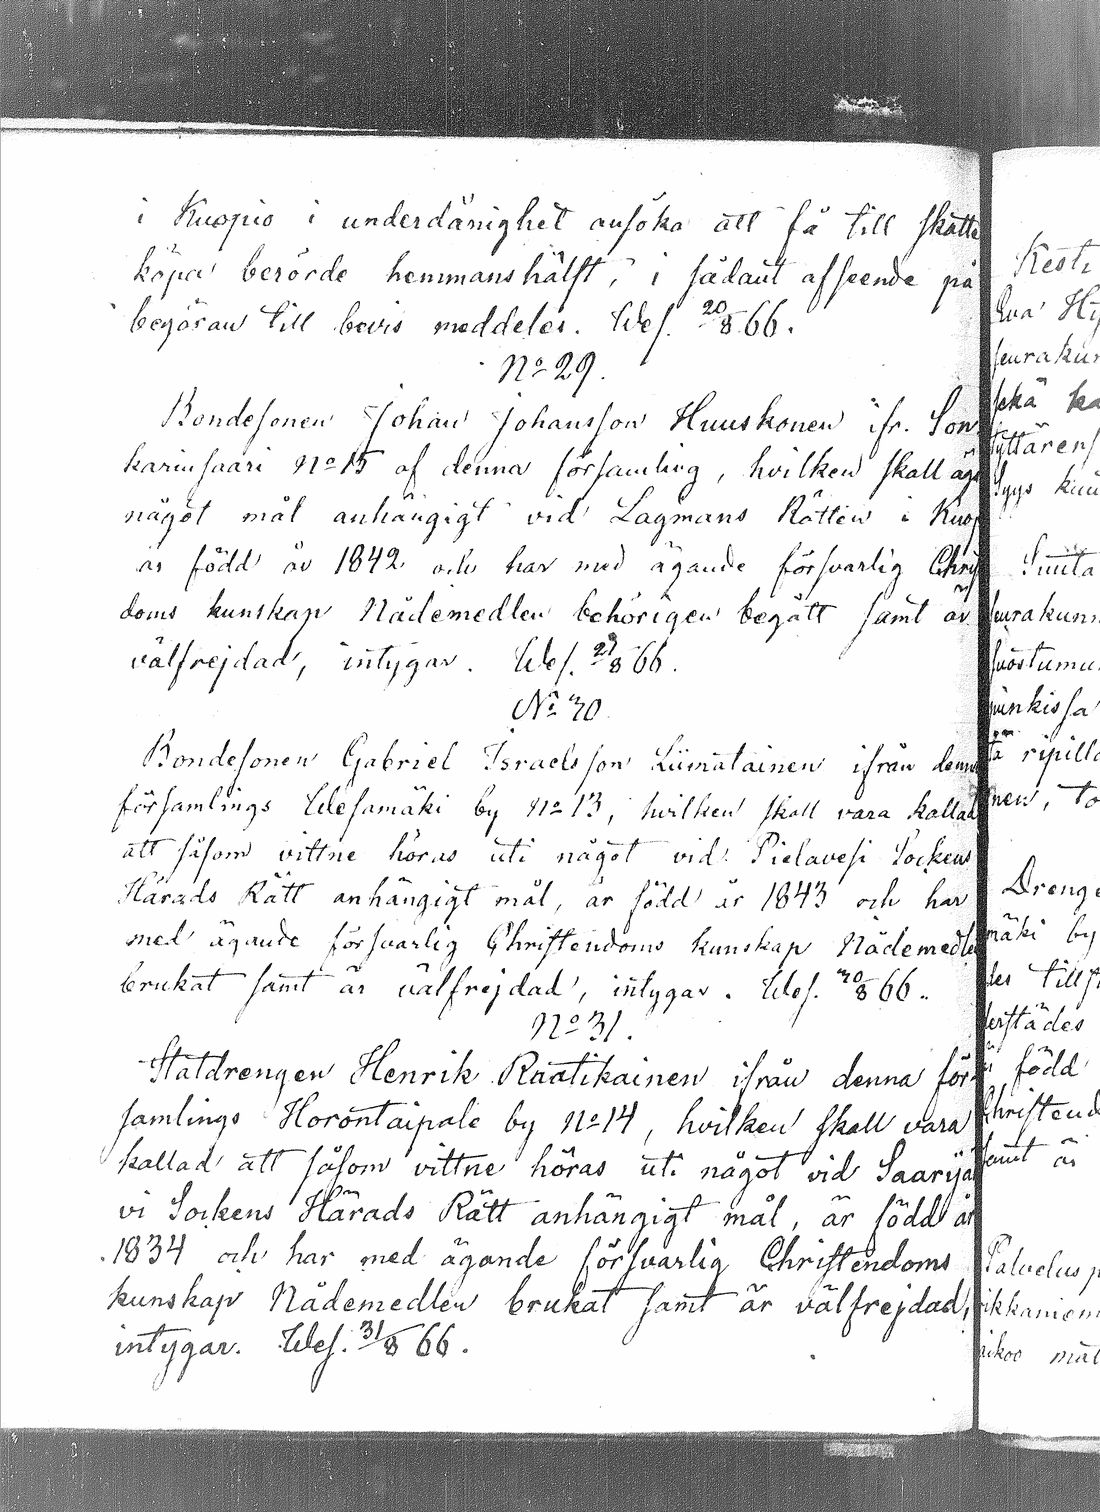 i Kuopio i underdånighet ansöka att få till skatte
köpa berörde hemmanshälft, i sådant afseende på
begäran till bevis meddeles. Wes. 20/8 66.
No 29.
Bondesonen Johan Johansson Huuskonen ifr. Son
karinsaari No 15 af denna församling, hvilken skall äga
något mål anhängigt vid Lagmans Rätten i Kuop
är född år 1842 och har med ägande försvarlig Chris
doms kunskap Nådemedlen behörigen begått samt är
välfrejdad, intygar. Wes. 29/8 66.
No 30
Bondesonen Gabriel Israelsson Liimatainen ifrån denna
församlings Wesamäki by No 13, hvilken skall vara kallad
att såsom vittne höras uti något vid Pielavesi Sockens
Härads Rätt anhängigt mål, är född år 1843 och har
med ägande försvarlig Christendoms kunskap Nådemedle
brukat samt är välfrejdad, intygar. Wes. 30/8 66.
No 31.
Statdrengen Henrik Raatikainen ifrån denna för-
samlings Horontaipale by No 14, hvilken skall vara
kallad att såsom vittne höras uti något vid Saarijä
vi Sockens Härads Rätt anhängigt mål, är född år
1834 och har med ägande försvarlig Christendoms
kunskap Nådemedlen brukat samt är välfrejdad,
intygar. Wes. 31/8 66.
Kesti
Eva Hy
seurakun
sekä ka
tyttärens
Syys kuu
Suuta
seurakunn
suostumu
ripille
nen, to
Drenge
mäki by
des tills
derstädes
född
Christend
samt är
Palvelus p
rikkaniem
rikoo mät